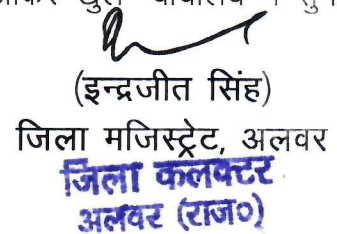 (इन्द्रजीत सिंह)
जिला मजिस्ट्रेट, अलवर
जिला कलक्टर
अलवर (राज०)